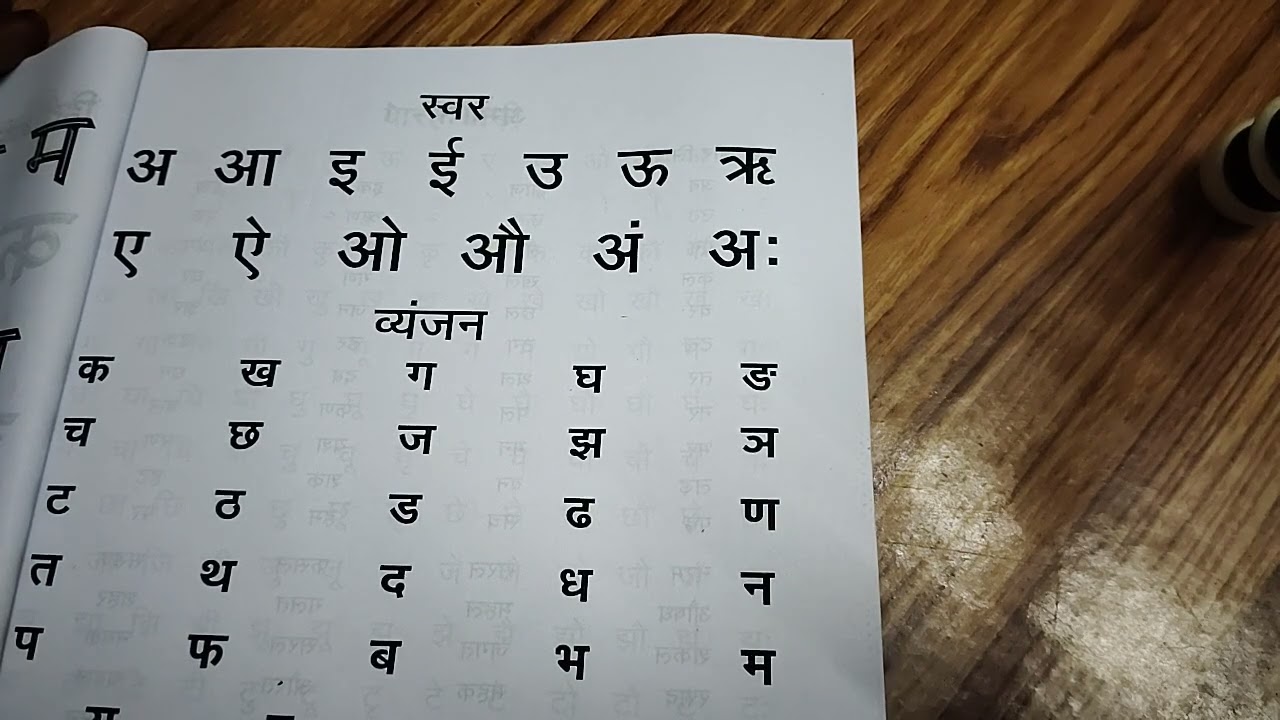 स्वर
अ आ इ ई उ ऊ ऋ
ए ऐ ओ औ अं अः
व्यंजन
क ख ग घ ङ
च छ ज झ ञ
ट ठ ड ढ ण
त थ द ध न
प फ ब भ म